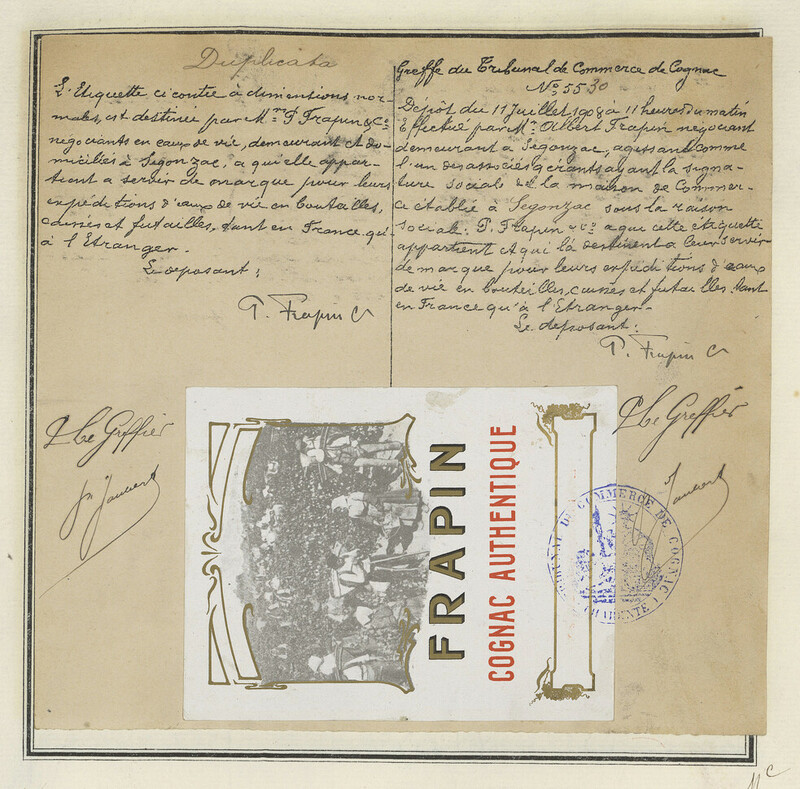 Duplicata
L'Etiquette ci contre à dimentions nor-
males, est destinée par Mrs P. Frapin & Co
négociants en eaux de vie, demeurant et do-
miciliés à Segonzac, a qui elle appar-
tient a servir de marque pour leurs
expéditions d'eaux de vie en bouteilles,
caisses et futailles, tant en France qu'
à l'Etranger.
Le deposant :
P. Frapin Co
P Le Greffier
Jn Jaubert
Greffe du Tribunal de Commerce de Cognac
No 5530
Dépôt du 11 Juillet 1908 à 11 heures du matin
Effectué par Mr Albert Frapin négociant
demeurant à Segonzac, agissant comme
l'un des associés gérants ayant la signa-
ture sociale de la maison de Commer-
ce établie à Segonzac sous la raison
sociale: P. Frapin & Co a qui cette étiquette
appartient et qui la destinent a leur servir
de marque pour leurs expéditions d'eaux
de vie en bouteilles, caisses et futailles tant
en France qu'à l'Etranger-
Le deposant :
P. Frapin Co
P Le Greffier
Jaubert
FRAPIN
COGNAC AUTHENTIQUE
TRIBUNAL DE COMMERCE DE COGNAC
CHARENTE